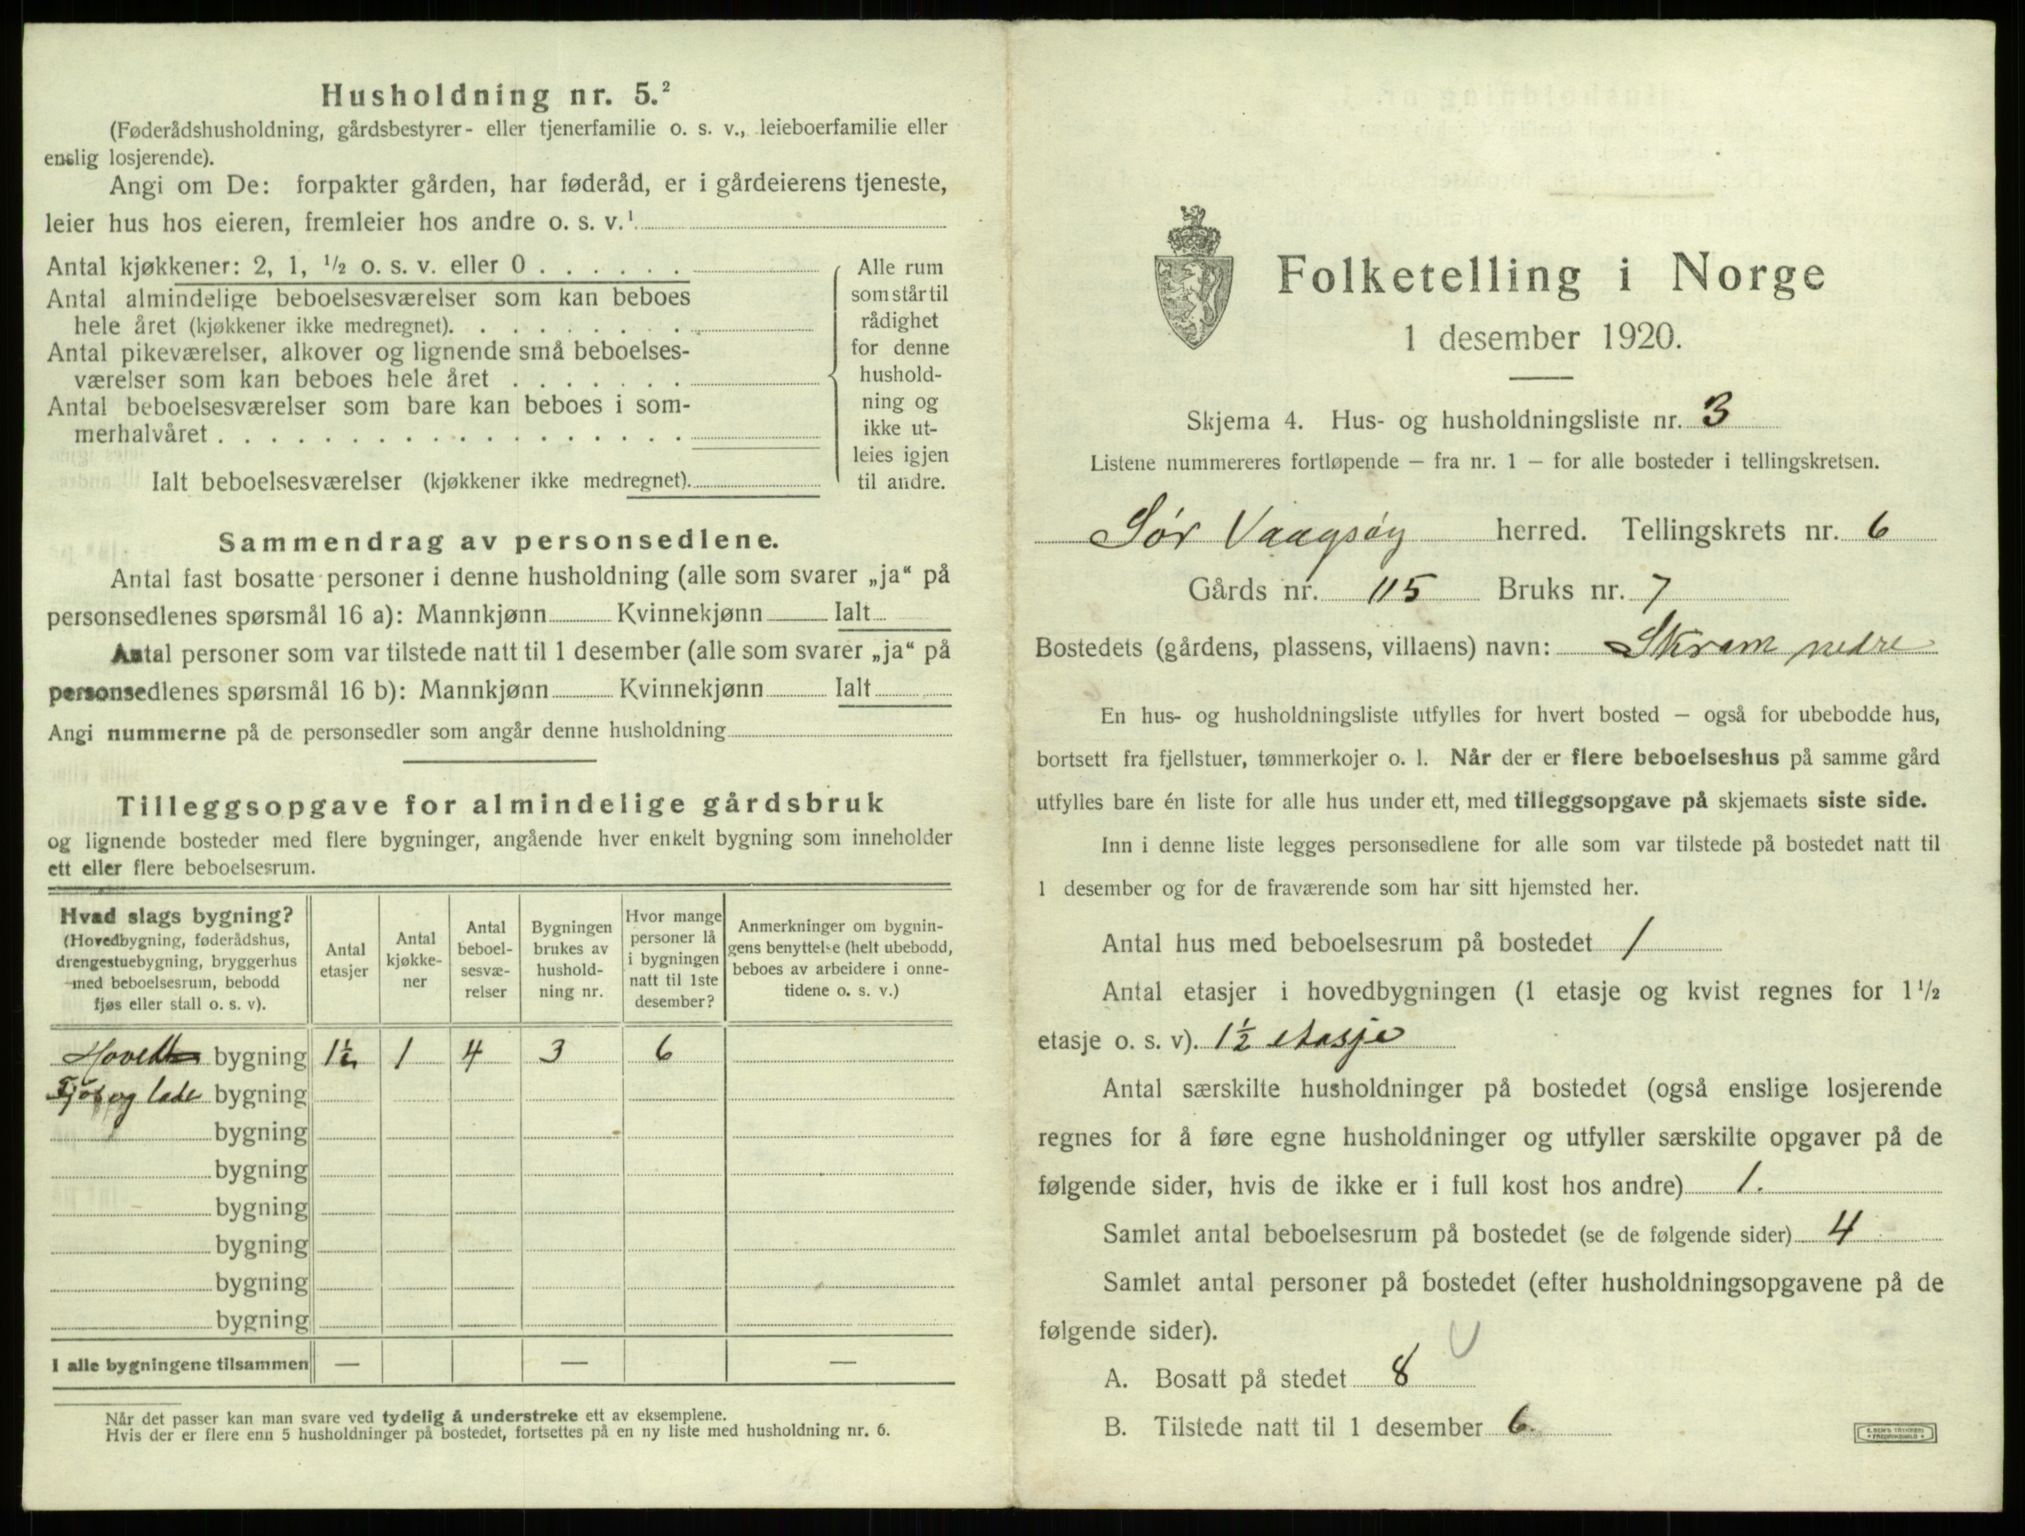 Husholdning nr. 5.²
(Føderådshusholdning, gårdsbestyrer- eller tjenerfamilie o. s. v., leieboerfamilie eller
enslig losjerende).
Angi om De: forpakter gården, har føderåd, er i gårdeierens tjeneste,
leier hus hos eieren, fremleier hos andre o. s. v.¹
Antal kjøkkener: 2, 1, ½ o. s. v. eller 0
Antal almindelige beboelsesværelser som kan beboes
hele året (kjøkkener ikke medregnet).
Antal pikeværelser, alkover og lignende små beboelses-
værelser som kan beboes hele året
Antal beboelsesværelser som bare kan beboes i som-
merhalvåret
Ialt beboelsesværelser (kjøkkener ikke medregnet).
Alle rum
som står til
rådighet
for denne
hushold-
ning og
ikke ut-
leies igjen
til andre.
Sammendrag av personsedlene.
Antal fast bosatte personer i denne husholdning (alle som svarer „ja“ på
personsedlenes spørsmål 16 a): Mannkjønn Kvinnekjønn Ialt
Antal personer som var tilstede natt til 1 desember (alle som svarer „ja“ på
personsedlenes spørsmål 16 b): Mannkjønn Kvinnekjønn Ialt
Angi nummerne på de personsedler som angår denne husholdning
Tilleggsopgave for almindelige gårdsbruk
og lignende bosteder med flere bygninger, angående hver enkelt bygning som inneholder
ett eller flere beboelsesrum.
Hvad slags bygning?
(Hovedbygning, føderådshus,
drengestuebygning, bryggerhus
med beboelsesrum, bebodd
fjøs eller stall o. s. v).
Antal
etasjer
Antal
kjøkke-
ner
Antal
beboel-
sesvæ-
relser
Bygningen
brukes av
hushold-
ning nr.
Hvor mange
personer lå
i bygningen
natt til 1ste
desember?
Anmerkninger om bygnin-
gens benyttelse (helt ubebodd,
beboes av arbeidere i onne-
tidene o. s. v.)
Hoved bygning 1½ 1 4 3 6
Fjøs og lade bygning
bygning
bygning
bygning
bygning
bygning
bygning
I alle bygningene tilsammen — — —
Når det passer kan man svare ved tydelig å understreke ett av eksemplene.
Hvis der er flere enn 5 husholdninger på bostedet, fortsettes på en ny liste med husholdning nr. 6.
Folketelling i Norge
1 desember 1920.
Skjema 4. Hus- og husholdningsliste nr. 3
Listene nummereres fortløpende — fra nr. 1 — for alle bosteder i tellingskretsen.
Sør Vaagsøy herred. Tellingskrets nr. 6
Gårds nr. 115 Bruks nr. 7
Bostedets (gårdens, plassens, villaens) navn: Skram nedre
En hus- og husholdningsliste utfylles for hvert bosted — også for ubebodde hus,
bortsett fra fjellstuer, tømmerkojer o. l. Når der er flere beboelseshus på samme gård
utfylles bare én liste for alle hus under ett, med tilleggsopgave på skjemaets siste side.
Inn i denne liste legges personsedlene for alle som var tilstede på bostedet natt til
1 desember og for de fraværende som har sitt hjemsted her.
Antal hus med beboelsesrum på bostedet 1
Antal etasjer i hovedbygningen (1 etasje og kvist regnes for 1½
etasje o. s. v). 1½ etasje
Antal særskilte husholdninger på bostedet (også enslige losjerende
regnes for å føre egne husholdninger og utfyller særskilte opgaver på de
følgende sider, hvis de ikke er i full kost hos andre) 1.
Samlet antal beboelsesrum på bostedet (se de følgende sider) 4
Samlet antal personer på bostedet (efter husholdningsopgavene på de
følgende sider).
A. Bosatt på stedet 8
B. Tilstede natt til 1 desember 6.